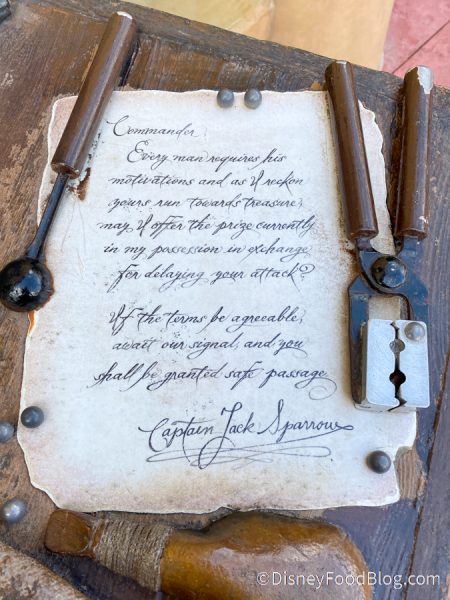 Commander,
Every man requires his
motivations and as I reckon
yours run towards treasure,
may I offer the prize currently
in my possession in exchange
for delaying your attack?
If the terms be agreeable,
await our signal, and you
shall be granted safe passage
Captain Jack Sparrow
©DisneyFoodBlog.com